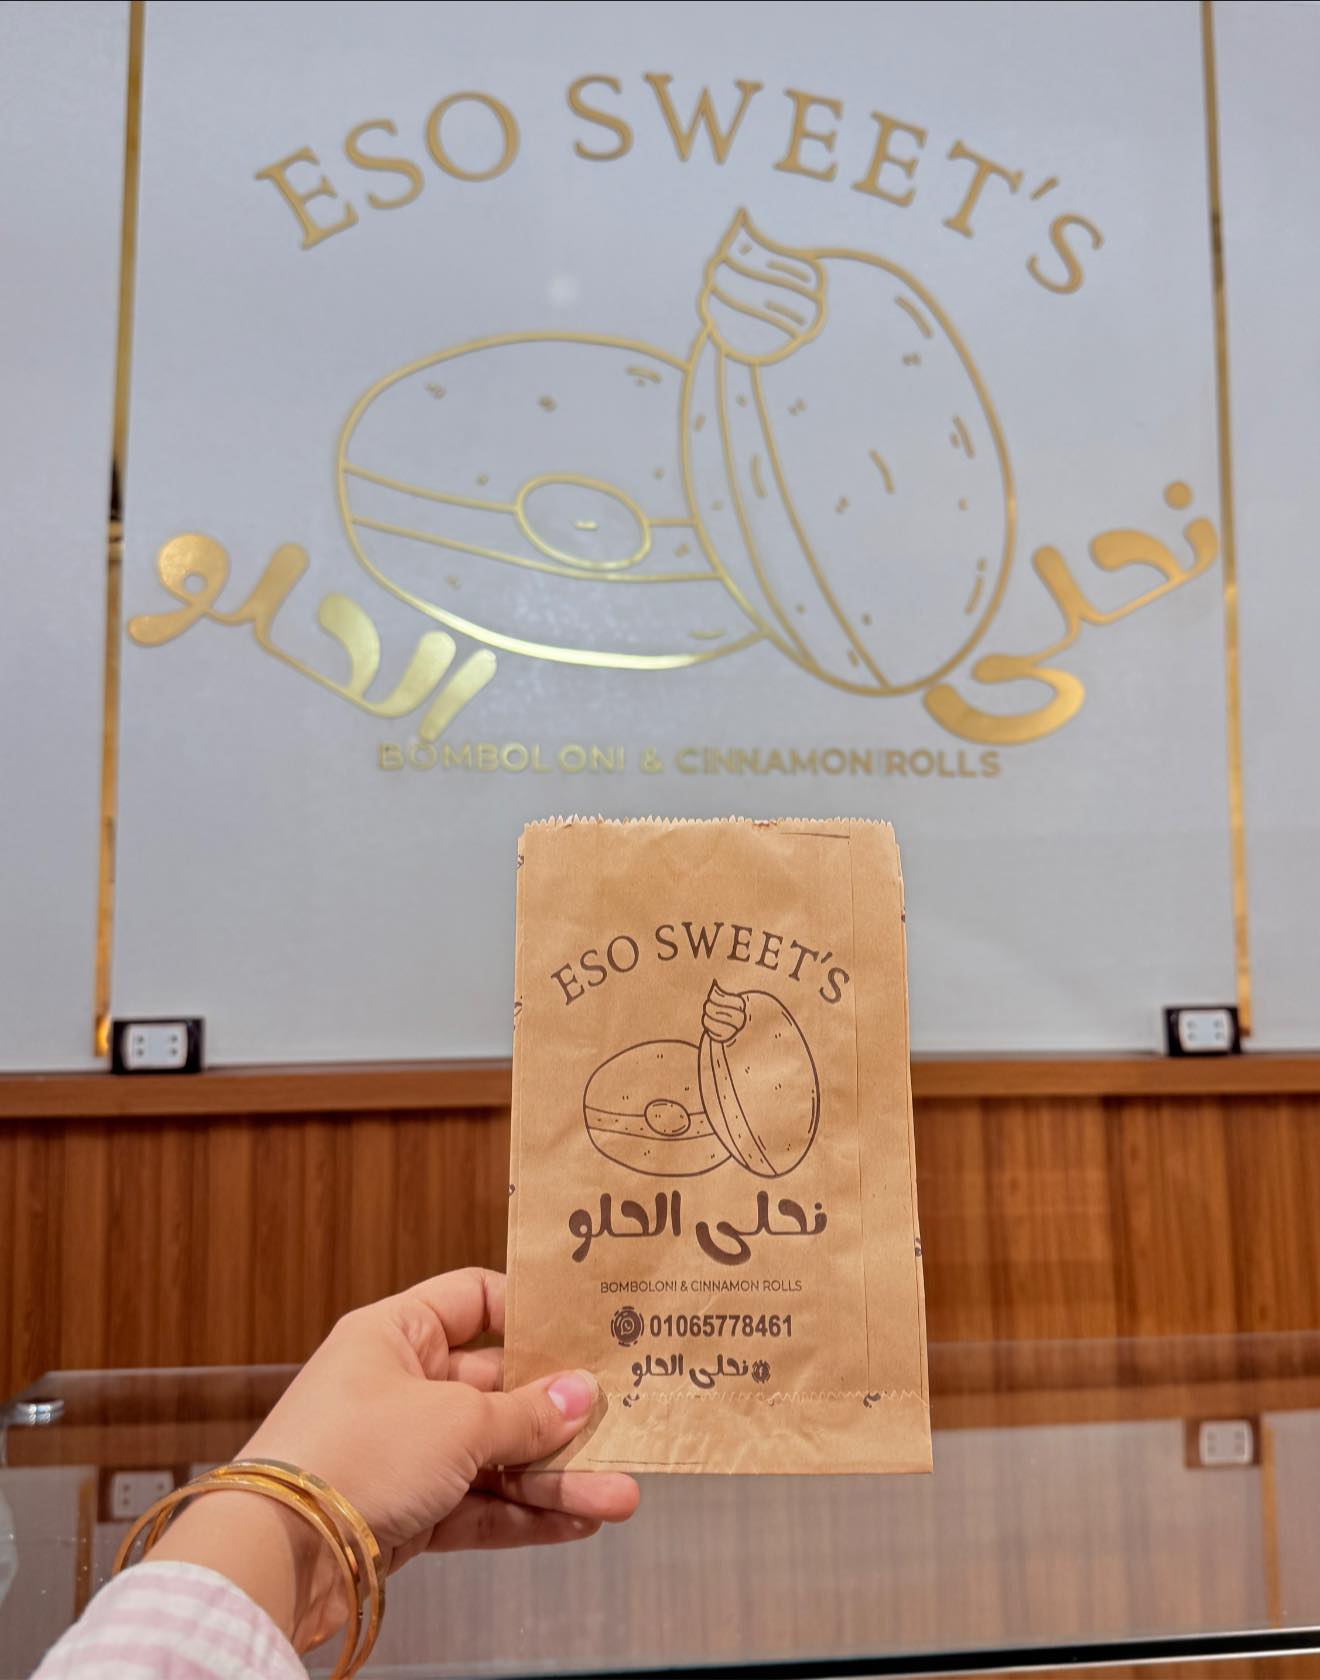 ESO SWEET'S
نحلى الحلو
BOMBOLONI & CINNAMON ROLLS
ESO SWEET'S
نحلى الحلو
BOMBOLONI & CINNAMON ROLLS
01065778461
نحلى الحلو